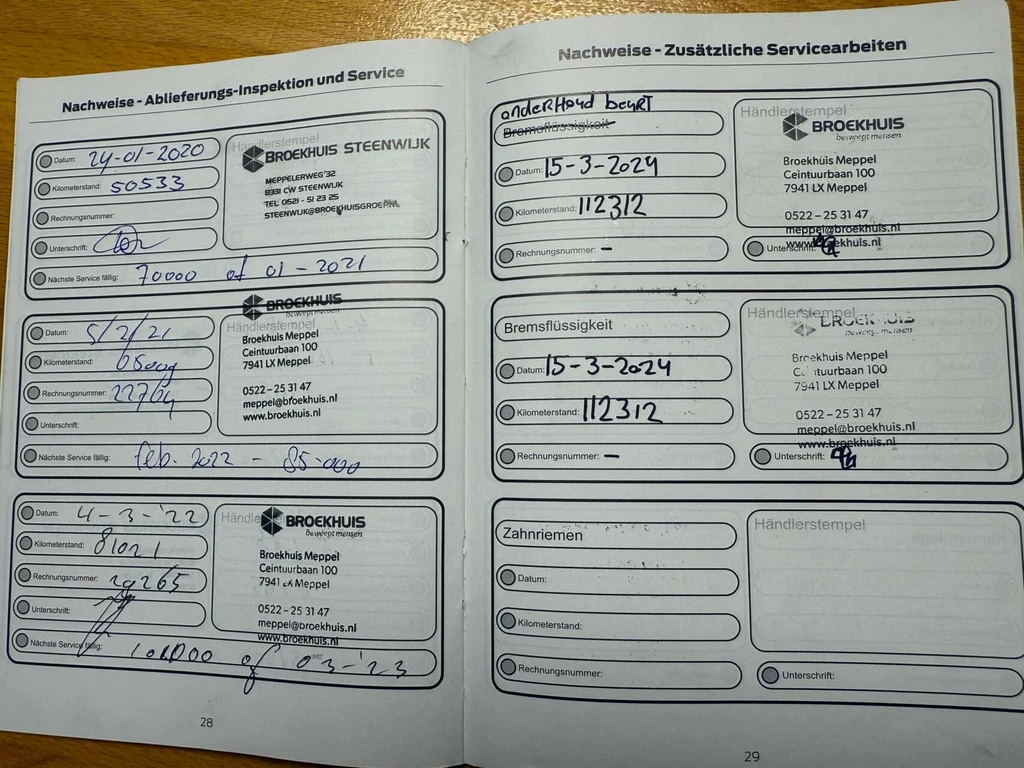 Nachweise - Ablieferungs-Inspektion und Service
Datum: 24-01-2020
Kilometerstand: 50533
Rechnungsnummer:
Unterschrift:
Nächste Service fällig: 70000 of 01-2021
Händlerstempel
BROEKHUIS STEENWIJK
MEPPELERWEG 32
8331 CW STEENWIJK
TEL 0521 - 51 23 25
Datum: 5/2/21
Kilometerstand:
Rechnungsnummer: 22764
Unterschrift:
Nächste Service fällig: feb. 2022 - 85-000
BROEKHUIS
beweegt mensen
Händlerstempel
Broekhuis Meppel
Ceintuurbaan 100
7941 LX Meppel
0522 - 25 31 47
meppel@broekhuis.nl
www.broekhuis.nl
Datum: 4-3-'22
Kilometerstand: 81021
Rechnungsnummer: 29265
Unterschrift:
Nächste Service fällig: of 03-'23
Händ
BROEKHUIS
beweegt mensen
Broekhuis Meppel
Ceintuurbaan 100
7941 LX Meppel
0522 - 25 31 47
meppel@broekhuis.nl
www.broekhuis.nl
28
Nachweise - Zusätzliche Servicearbeiten
onderHoud beurT
Bremsflüssigkeit
Datum: 15-3-2024
Kilometerstand: 112312
Rechnungsnummer: -
Händlerstempel
BROEKHUIS
beweegt mensen
Broekhuis Meppel
Ceintuurbaan 100
7941 LX Meppel
0522 - 25 31 47
meppel@broekhuis.nl
Unterschrift:
Bremsflüssigkeit
Datum: 15-3-2024
Kilometerstand: 112312
Rechnungsnummer: -
Händlerstempel
BROEKHUIS
beweegt mensen
Broekhuis Meppel
Ceintuurbaan 100
7941 LX Meppel
0522 - 25 31 47
meppel@broekhuis.nl
www.broekhuis.nl
Unterschrift:
Zahnriemen
Datum:
Kilometerstand:
Rechnungsnummer:
Händlerstempel
Unterschrift:
29